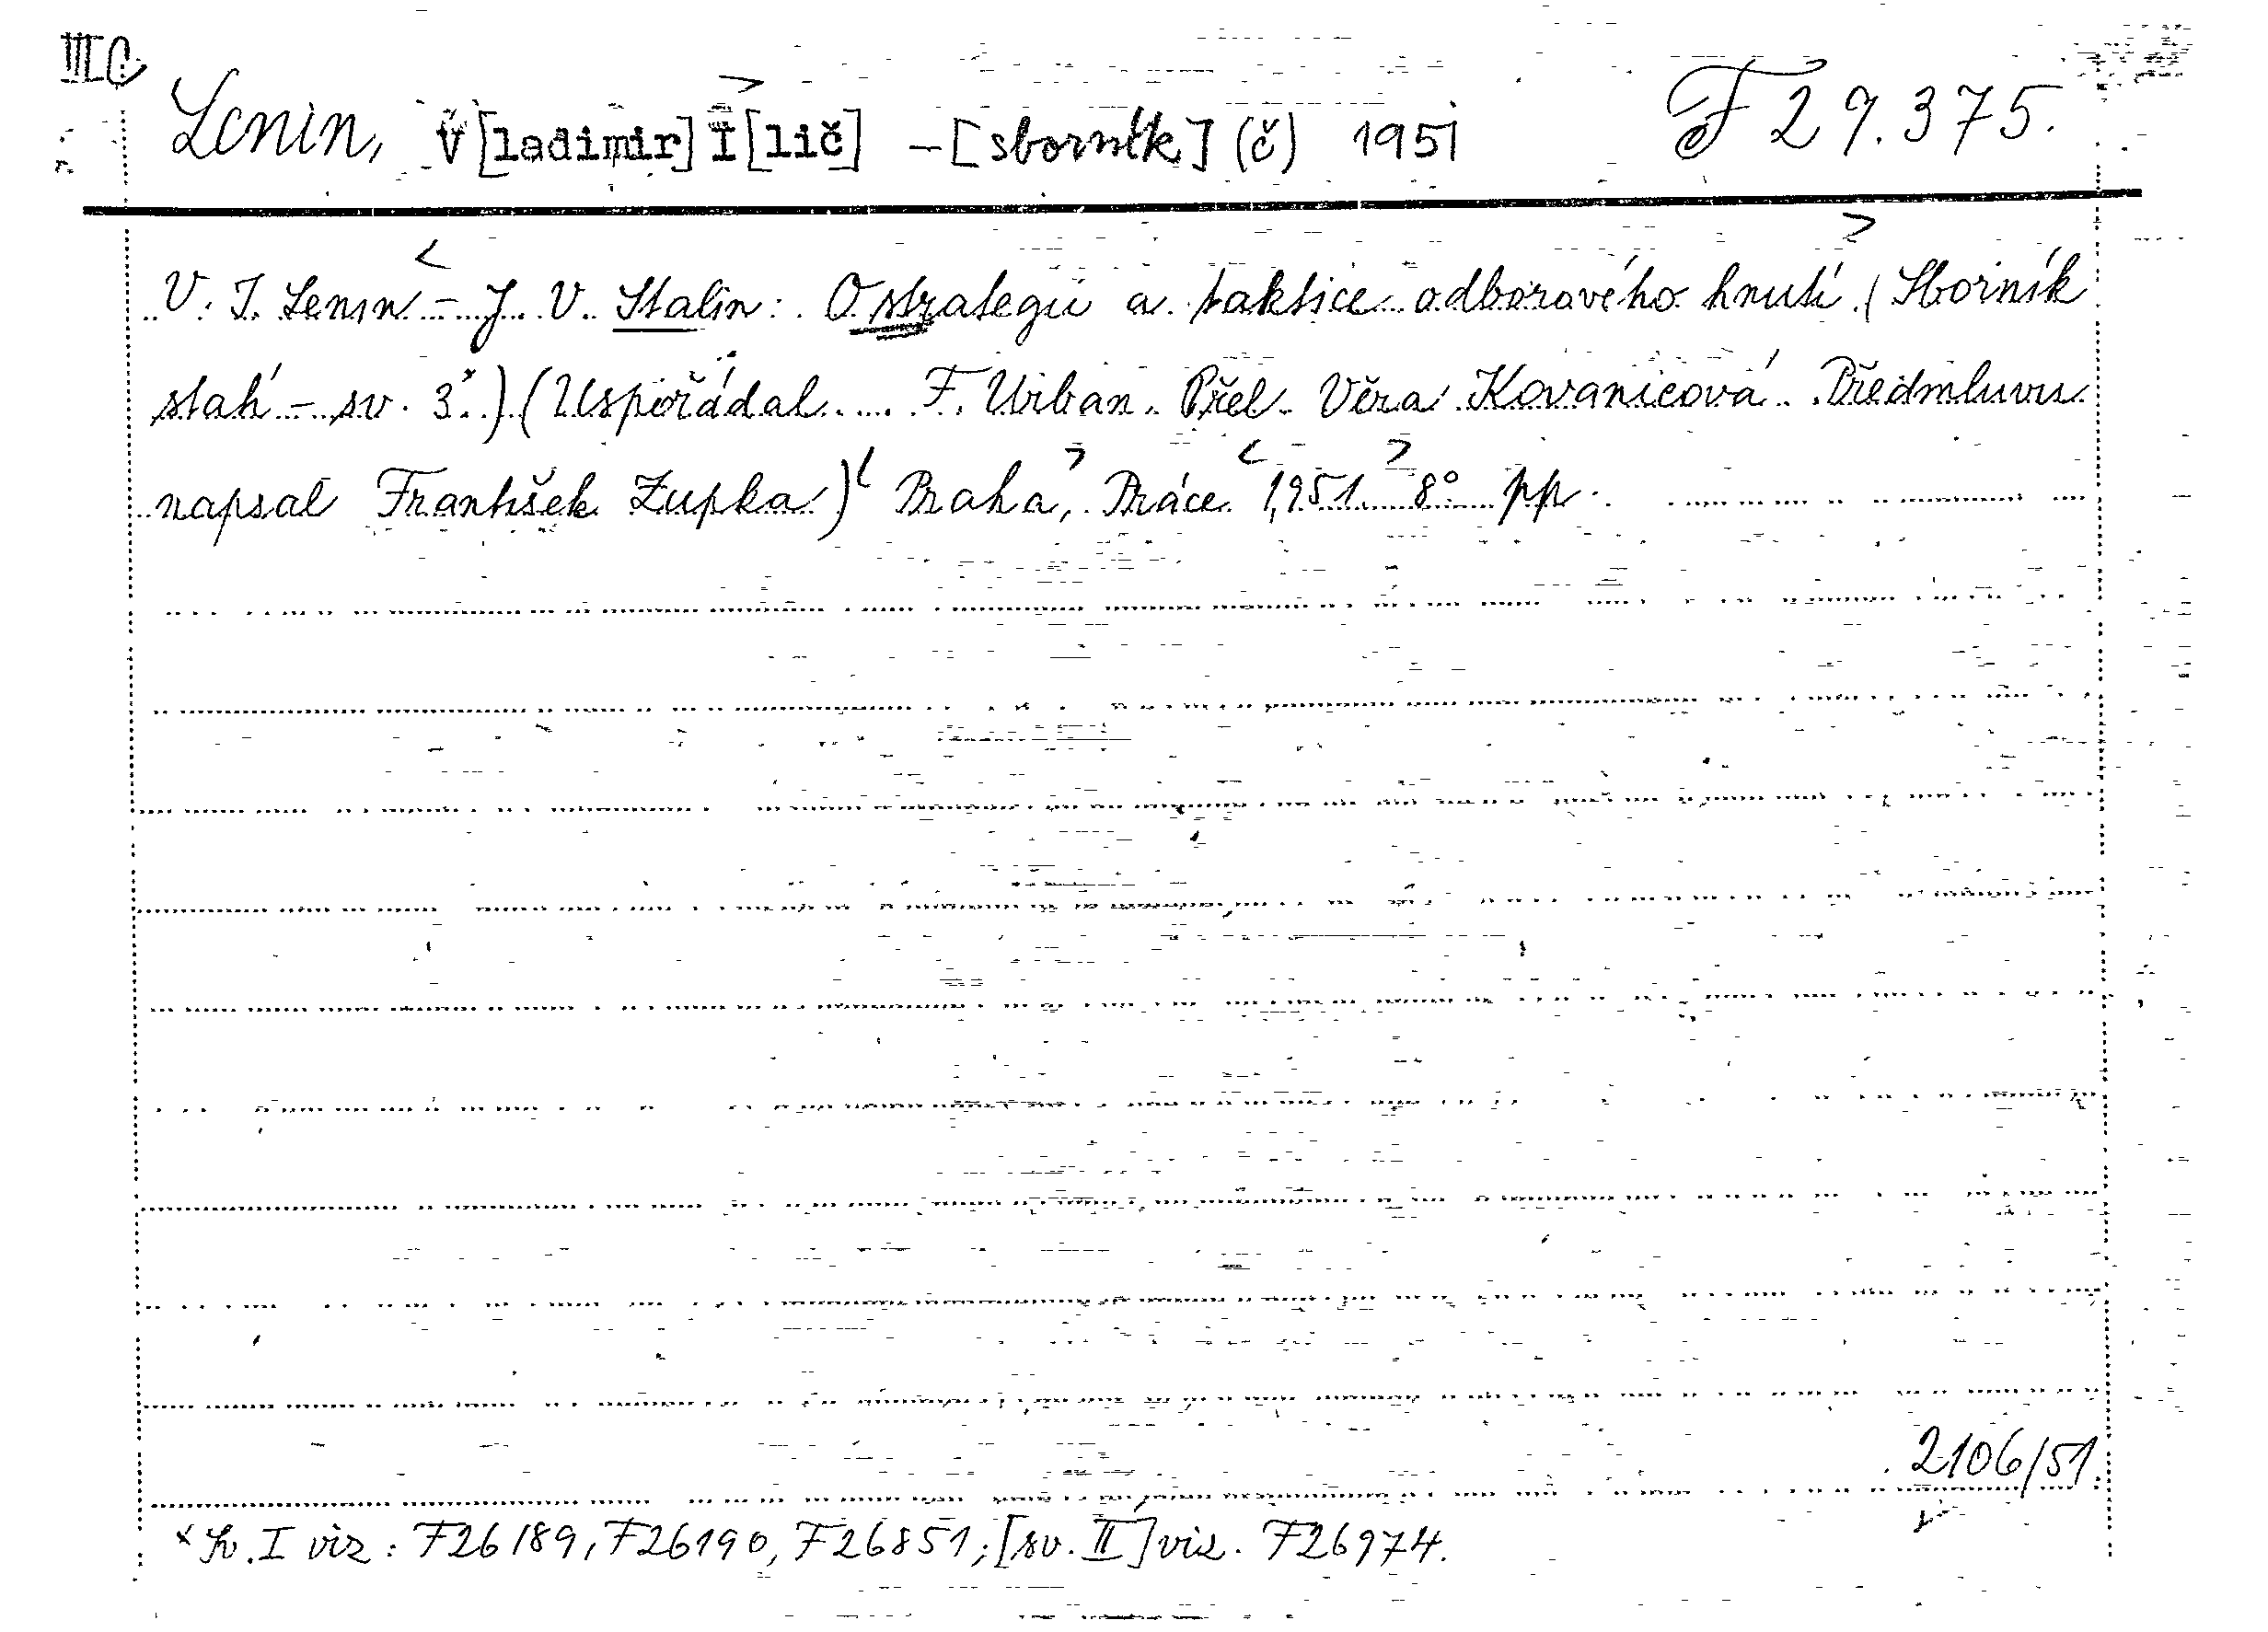 III C
Lenin, V[ladimir] I[lič] – [sborník] (č) 1951 F 29.375.
V. I. Lenin – J. V. Stalin: O strategii a taktice odborového hnutí. (Sborník
statí – sv. 3.ˣ) (Uspořádal F. Urban. Přel. Věra Kovanicová. Předmluvu
napsal František Zupka.) Praha, Práce 1951. 8° pp.
2106/51.
ˣ Sv. I viz: F26189, F26190, F26851; [sv. II] viz. F26974.